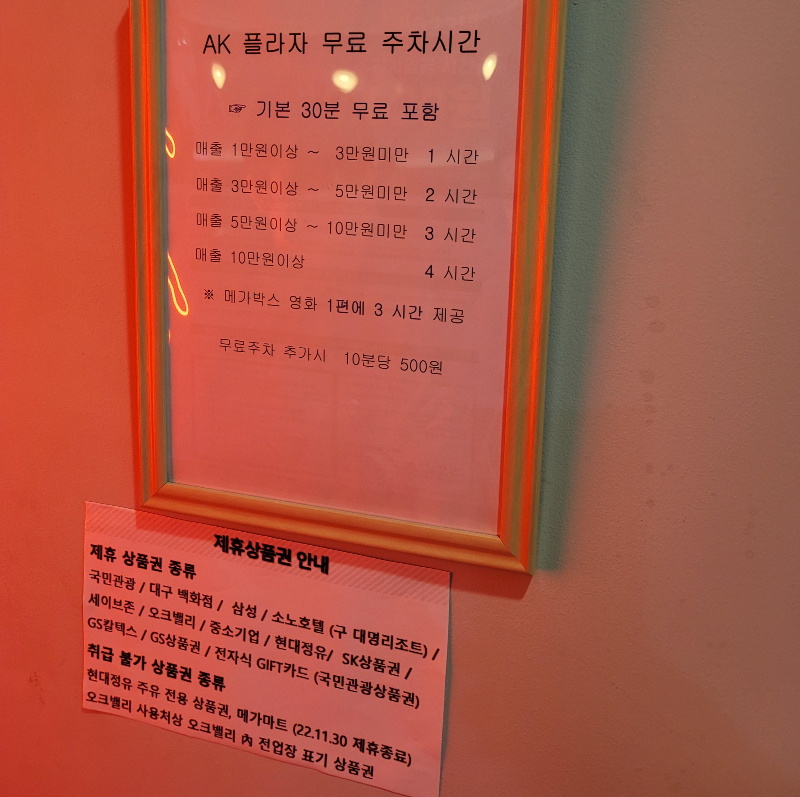 AK 플라자 무료 주차시간
☞ 기본 30분 무료 포함
매출 1만원이상 ~ 3만원미만 1 시간
매출 3만원이상 ~ 5만원미만 2 시간
매출 5만원이상 ~ 10만원미만 3 시간
매출 10만원이상 4 시간
※ 메가박스 영화 1편에 3 시간 제공
무료주차 추가시 10분당 500원
제휴상품권 안내
제휴 상품권 종류
국민관광 / 대구 백화점 / 삼성 / 소노호텔 (구 대명리조트) /
세이브존 / 오크밸리 / 중소기업 / 현대정유/ SK상품권 /
GS칼텍스 / GS상품권 / 전자식 GIFT카드 (국민관광상품권)
취급 불가 상품권 종류
현대정유 주유 전용 상품권, 메가마트 (22.11.30 제휴종료)
오크밸리 사용처상 오크밸리 內 전업장 표기 상품권